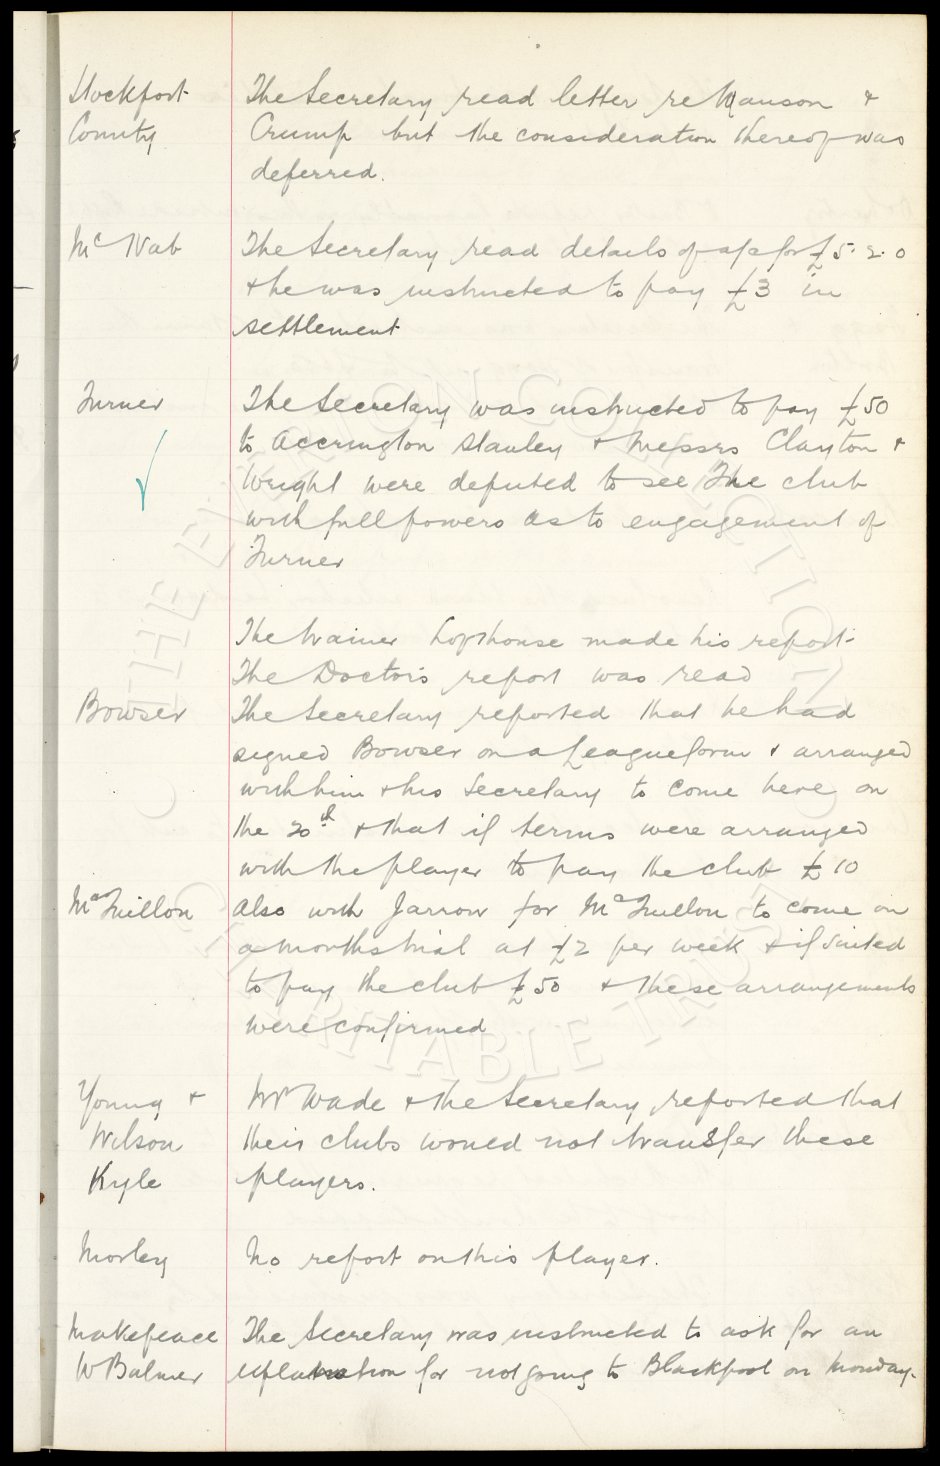 Stockport
County
The Secretary read letter re Manson &
Crump but the consideration thereof was
deferred.
Mc Nab
The Secretary read details of a/c for £5. 2. 0
& he was instructed to pay £3 in
settlement
Turner
The Secretary was instructed to pay £50
to Accrington Stanley & Messrs Clayton &
Wright were deputed to see The club
with full powers as to engagement of
Turner
The trainer Lofthouse made his report.
The Doctors report was read
Bowser
The Secretary reported that he had
signed Bowser on a League form & arranged
with him & his Secretary to come here on
the 20th & that if terms were arranged
with the player to pay the club £10
Also with Jarrow for to come on
a months trial at £2 per week & if suited
to pay the club £50 & these arrangements
were confirmed
Young &
Wilson
Kyle
Mr Wade & the Secretary reported that
their clubs would not transfer these
players.
Morley
No report on this player.
Makepeace
W Balmer
The Secretary was instructed to ask for an
for not going to Blackpool on Monday.
THE EVERTON COLLECTION
CHARITABLE TRUST